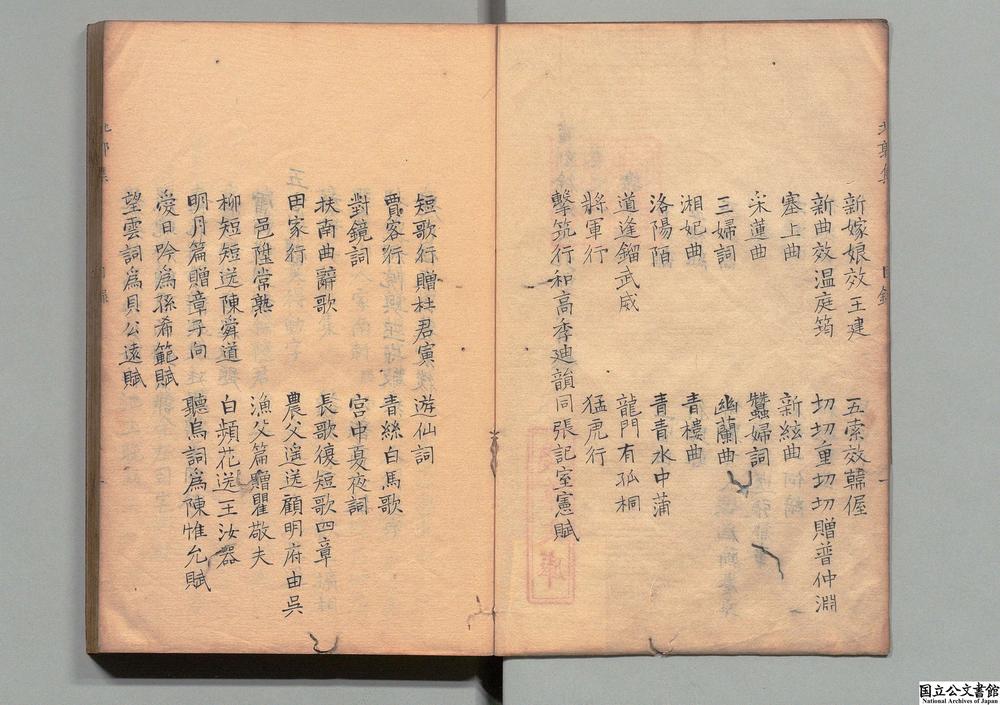 新嫁娘效王建 五索效韓偓
新曲效温庭筠 切切重切切贈普仲淵
塞上曲 新絃曲
采蓮曲 蠶婦詞
三婦詞 幽蘭曲
湘妃曲 青樓曲
洛陽陌 青青水中蒲
道逢鎦武威 龍門有孤桐
將軍行 猛虎行
擊筑行和高季迪韻同張記室憲賦
短歌行贈杜君寅 遊仙詞
賈客行 青絲白馬歌
對鏡詞 宮中夏夜詞
扶南曲辭歌 長歌復短歌四章
田家行 農父謠送顧明府由吳
邑陞常熟 漁父篇贈瞿敬夫
柳短短送陳舜道 白蘋花送王汝器
明月篇贈章子向 聽烏詞爲陳惟允賦
愛日吟爲孫希範賦
望雲詞爲貝公遠賦
国立公文書館
National Archives of Japan